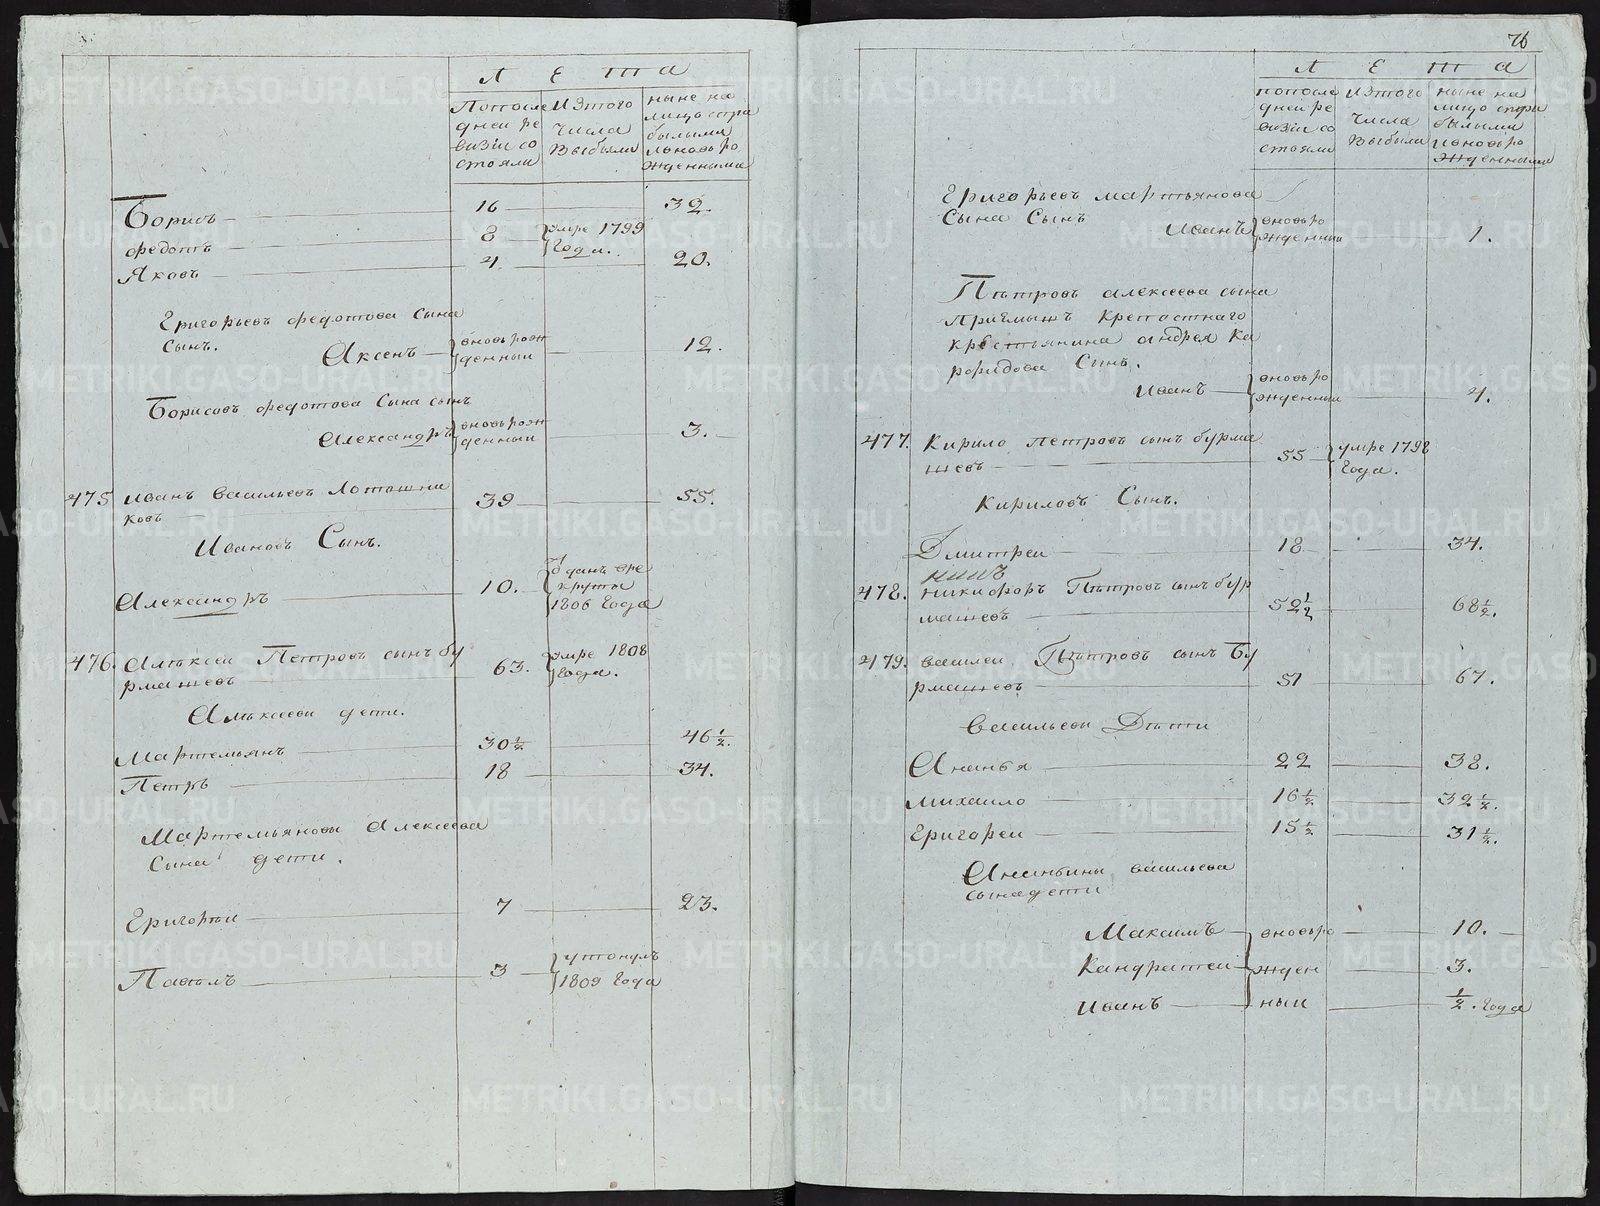 Лета
Попосле
дней ре
визiи со
стояли
Изтого
числа
Выбыли
ныне на
лицо спри
былыми
иновьро
жденными
Борисъ 16 32.
Федотъ 8 умре 1799
года.
Яковъ 4 20.
Григорьевъ федотова сына
сынъ.
Аксенъ вновь рож
денный 12.
Борисовъ федотова сына сынъ
Александръ вновь рож
денный 3.
475 Иванъ Васильевъ Лоташни
ковъ 39 55.
Ивановъ Сынъ.
Александръ 10. отданъ вре
круты
1806 года
476. Алѣксей Петровъ сынъ бу
рмашевъ 63. умре 1808
года.
Алѣксеевы дети.
Мартемьянъ 30½ 46½.
Петръ 18 34.
Мартемьяновы Алексеева
Сына дети.
Григорьи 7 23.
Павелъ 3 утонулъ
1809 года
76
Лета
попосле
дней ре
визiи со
стояли
Изтого
числа
Выбыли
ныне на
лицо спри
былыми
ивновьро
жденными
Григорьевъ мартьянова
Сына Сынъ
Иванъ вновьро
жденный 1.
Пѣтровъ алексеева сына
Приемышъ крепостнаго
крестьянина андрея Ка
Сынъ.
Иванъ вновьро
жденный 4.
477. Кирило Петровъ сынъ бурма
шевъ 55 умре 1798
года.
Кириловъ Сынъ.
Дмитреи 18 34.
478. Никифоръ Пѣтровъ сынъ бур
машевъ 52½ 68½.
479. Василеи Пѣтровъ сынъ Бу
рмашевъ 51 67.
Васильевы Дѣти
Ананья 22 38.
Михаило 16½ 32½.
Григореи 15½ 31½.
Ананьины васильева
сына дети
Максимъ вновьро 10.
Кандратеи жден 3.
Иванъ ныи ½. года
METRIKI.GASO-URAL.RU